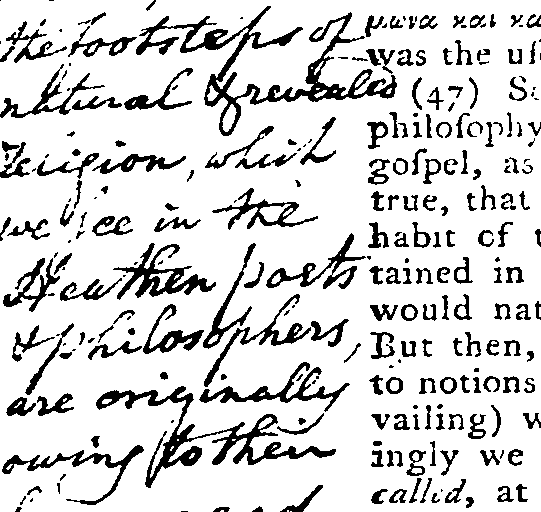 the footsteps of
natural & revealed
religion, which
we see in the
Heathen poets
& philosophers,
are originally
owing to their
was the uſ
(47) Sc
philoſophy
goſpel, as
true, that
habit of t
tained in
would nat
But then,
to notions
vailing) w
ingly we
called, at